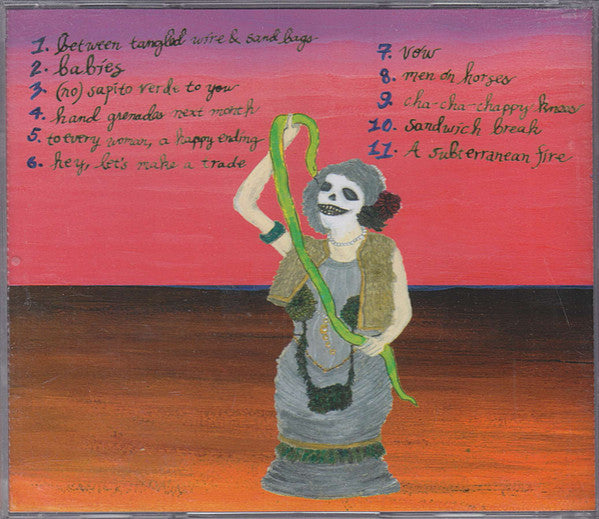 1. between tangled wire & sand bags
2. babies
3. (no) sapito verde to you
4. hand grenadas next month
5. to every woman, a happy ending
6. hey, let's make a trade
7. vow
8. men on horses
9. cha-cha-chappy knees
10. sandwich break
11. A subterranean fire